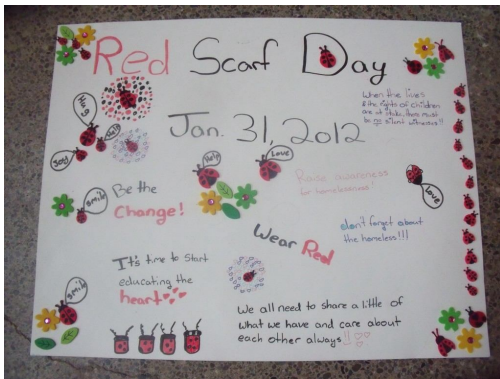 Red Scarf Day
When the lives
& the rights of children
are at stake, there must
be no silent witnesses!!
Jan. 31, 2012
Hug
Help
Joy
Help
Love
Raise awareness
for homelessness!
Love
Smile
Be the
Change!
Wear Red
don't forget about
the homeless!!!
It's time to start
educating the
heart
Smile
We all need to share a little of
what we have and care about
each other always!!